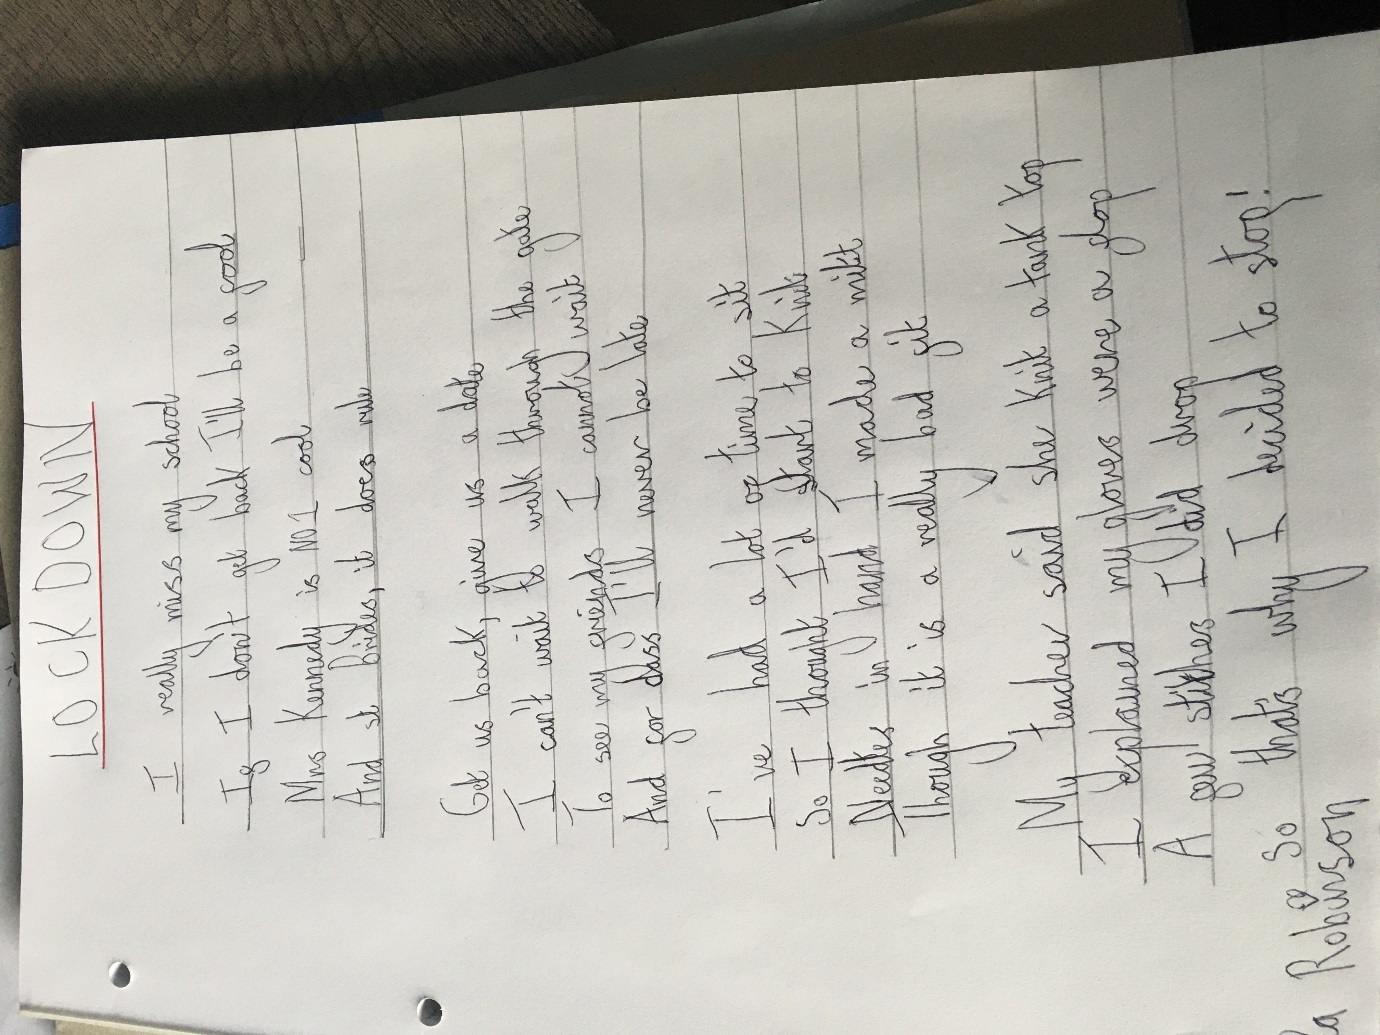 LOCKDOWN
I really miss my school
If I don't get back I'll be a fool
Mrs Kennedy is NO1 cool
And st Brides, it does rule
Get us back, give us a date
I can't wait to walk through the gate
To see my friends I cannot wait
And for class I'll never be late
I've had a lot of time to sit
So I thought I'd start to Knit
Needles in hand I made a mitt
Though it is a really bad fit
My teacher said she Knit a tank top
I explained my gloves were a flop
A few stitches I did drop
So that's why I decided to stop!
Robinson